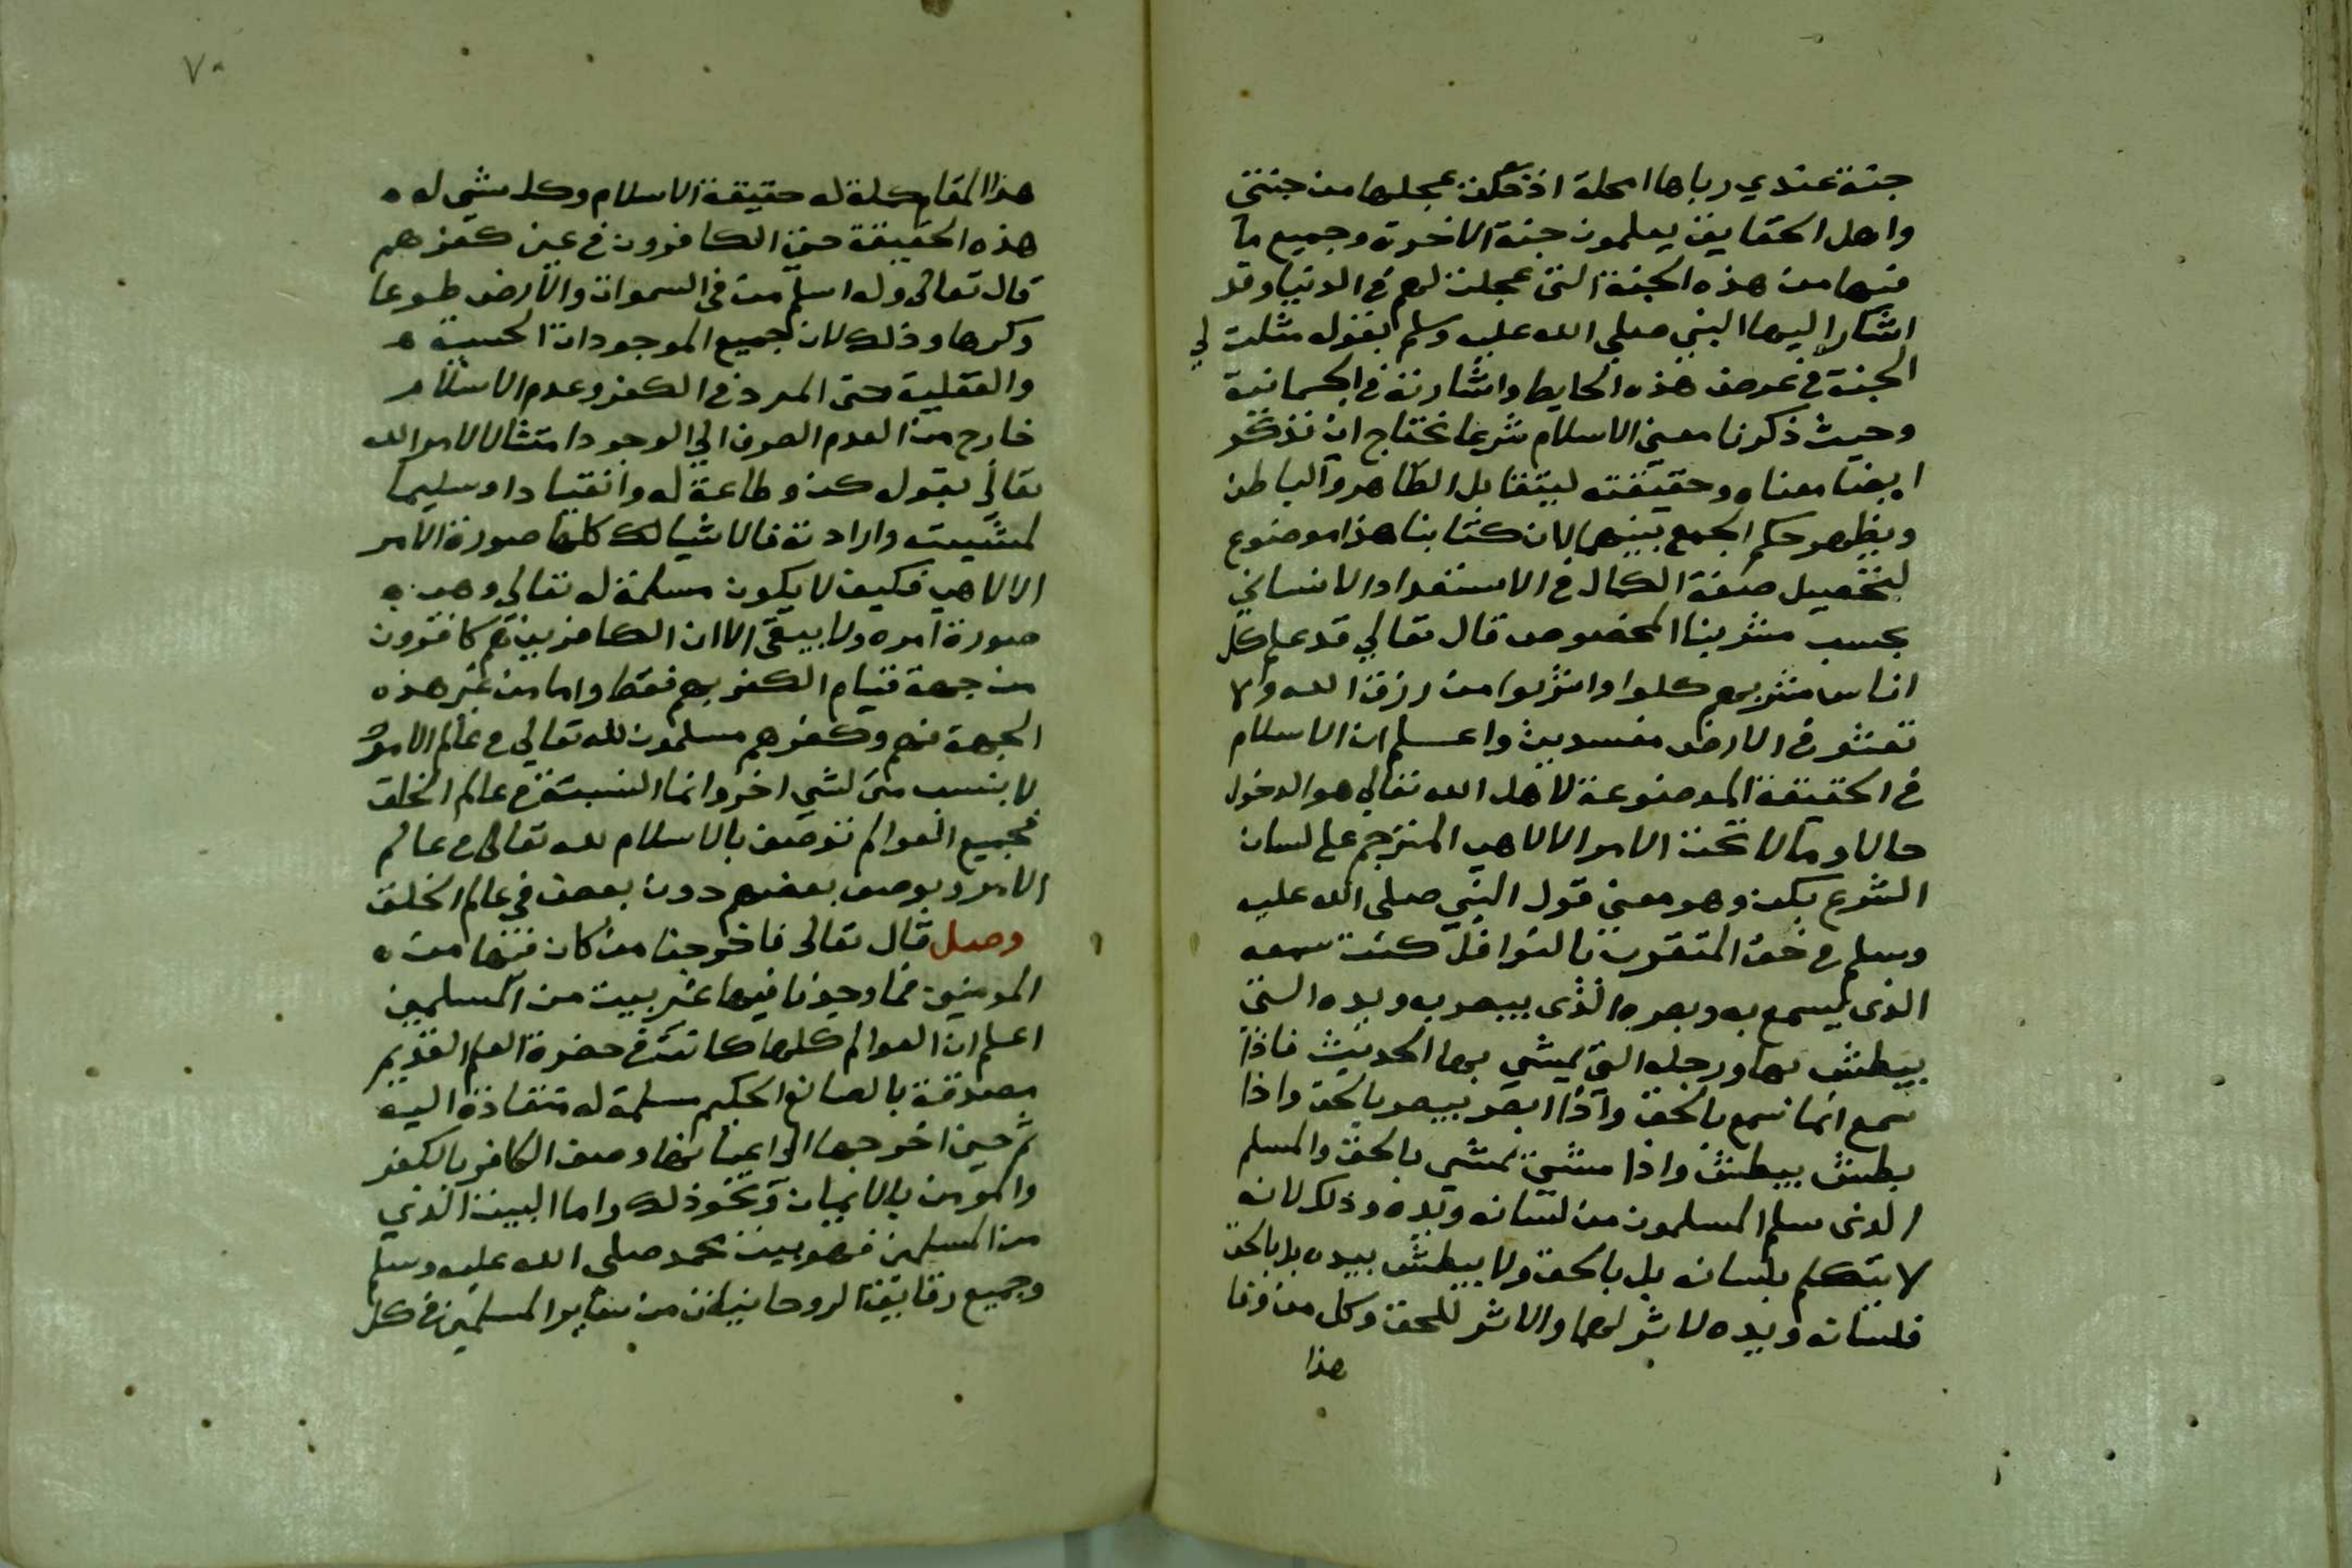 جنة عندي رباها امحلة اذ عجلها من جنتي
واهل الحقايق يعلمون جنة الاخرة وجميع ما
فيها من هذه الجنة التي عجلت لهم في الدنيا وقد
اشار اليها النبي صلي الله عليه وسلم بقوله مثلت لي
الجنة في عرض هذه الحايط واشارته في الجسمانية
وحيث ذكرنا معني الاسلام شرعا نحتاج ان نذكر
ايضا معناه وحقيقته ليتقابل الظاهر والباطن
ويظهر حكم الجمع بينهما لان كتابنا هذا موضوع
لتحصيل صفة الكمال في الاستعداد الانساني
بحسب مشربنا المخصوص قال تعالي قد علم كل
اناس مشربهم كلوا واشربوا من رزق الله ولا
تعثو في الارض مفسدين واعلم ان الاسلام
في الحقيقة الموضوعة لاهل الله تعالي هو الدخول
حالا ومالا تحت الامر الالاهي المترجم علي لسان
الشرع بكن وهو معني قول النبي صلي الله عليه
وسلم في حق المتقرب بالنوافل كنت سمعه
الذي يسمع به وبصره الذي يبصر به ويده التي
يبطش بها ورجله التي يمشي بها الحديث فاذا
سمع انما سمع بالحق واذا ابصر يبصر بالحق واذا
بطش يبطش واذا مشي يمشي بالحق والمسلم
الذي سلم المسلمون من لسانه ويده وذلك لانه
لا يتكلم بلسانه بل بالحق ولا يبطش بيده بل بالحق
فلسانه ويده لا اثر لهما والاثر للحق وكل من وفا
هذا
٧٠
هذا المقام كلة له حقيقة الاسلام وكل شي له
هذه الحقيقة حتي الكافرون في عين كفرهم
قال تعالي وله اسلم من في السموات والارض طوعا
وكرها وذلك لان جميع الموجودات الحسية
والعقلية حتي المرد في الكفر وعدم الاسلام
خارج من العدم الصرف الي الوجود امتثالا لامر الله
تعالي بقوله كن وطاعة له وانقيادا وسليما
لمشيته وارادته فالاشيا لك كلها صورة الامر
الالاهي فكيف لا يكون مسلمة له تعالي وهي
صورة امره ولا يبقي الا ان الكافرين هم كافرون
من جهة قيام الكفر بهم فقط واما من غير هذه
الجهة فهم وكفرهم مسلمون لله تعالي في عالم الامر
لا ينسب شي لشي اخر وانما النسبة في عالم الخلق
فجميع العوالم توصف بالاسلام لله تعالي في عالم
الامر ويوصف بعضهم دون بعض في عالم الخلق
وصل قال تعالي فاخرجنا من كان فيها من
المومنين فما وجدنا فيها غير بيت من المسلمين
اعلم ان العوالم كلها كانت في حضرة العلم القديم
مصدقة بالصانع الحكيم مسلمة له منقادة اليه
ثم حين اخرجها الي اعيانها وصف الكافر بالكفر
والمومن بالايمان ونحو ذلك واما البيت الذي
من المسلمين فهو بيت محمد صلي الله عليه وسلم
وجميع رقايق الروحانيات من ساير المسلمين في كل